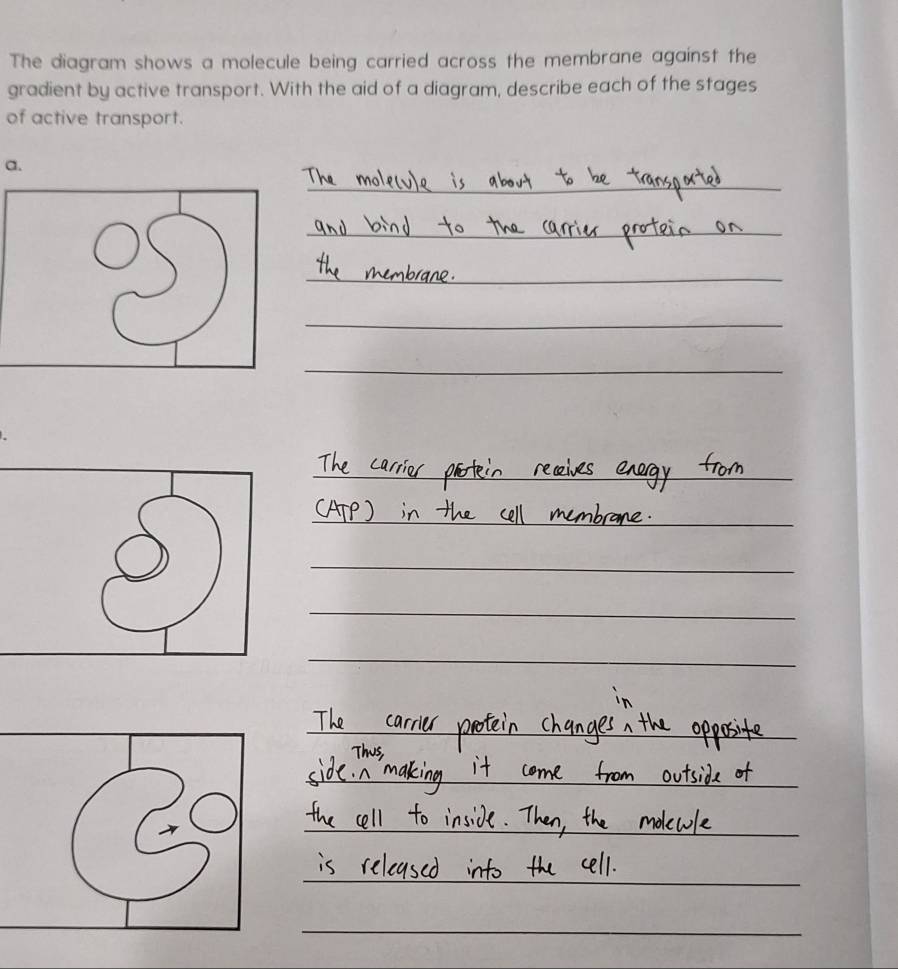 The diagram shows a molecule being carried across the membrane against the
gradient by active transport. With the aid of a diagram, describe each of the stages
of active transport.
a.
The molecule is about to be transported
and bind to the carrier protein on
the membrane.
The carrier protein receives energy from
(ATP) in the cell membrane.
The carrier protein changes in the opposite
side. Thus, making it come from outside of
the cell to inside. Then, the molecule
is released into the cell.